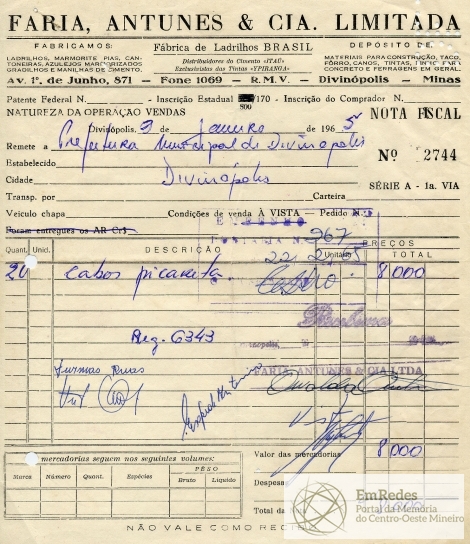 FARIA, ANTUNES & CIA. LIMITADA
FABRICAMOS: Fábrica de Ladrilhos BRASIL DEPÓSITO DE
LADRILHOS, MARMORITE PIAS, CANTONEIRAS, AZULEJOS MARMORIZADOS GRADILHOS E MANILHAS DE CIMENTO.
Distribuidores do Cimento «ITAÚ»
Exclusivistas das Tintas «YPIRANGA»
MATERIAIS PARA CONSTRUÇÃO, TACO, FÔRRO, CANOS, TINTAS,
CONCRETO E FERRAGENS EM GERAL.
Av. 1º. de Junho, 871 — Fone 1069 — R.M.V. — Divinópolis — Minas
Patente Federal N. - Inscrição Estadual 170 - Inscrição do Comprador N.
800
NATUREZA DA OPERAÇÃO VENDAS
NOTA FISCAL
Divinópolis, 3 de Janeiro de 1965
Remete a Prefeitura Municipal de Divinópolis
Nº 2744
Estabelecido
Cidade Divinópolis
SÉRIE A - 1a. VIA
Transp. por Carreteira
Veículo chapa Condições de venda À VISTA — Pedido N.
EMPENHO
Foram entregues os AR Cr$
967
Quant. Unid. DESCRIÇÃO PREÇOS
Unitário TOTAL
22 2 65
20 cabos picareta 8,000
Reg. 6343
Turmas Ruas
FARIA, ANTUNES & CIA LTDA
Valor das mercadorias 8,000
As mercadorias seguem nos seguintes volumes:
Marca Número Quant. Espécies PÊSO
Bruto Líquido
Despesas
NÃO VALE COMO RECIBO
EmRedes
Portal da Memória
do Centro-Oeste Mineiro